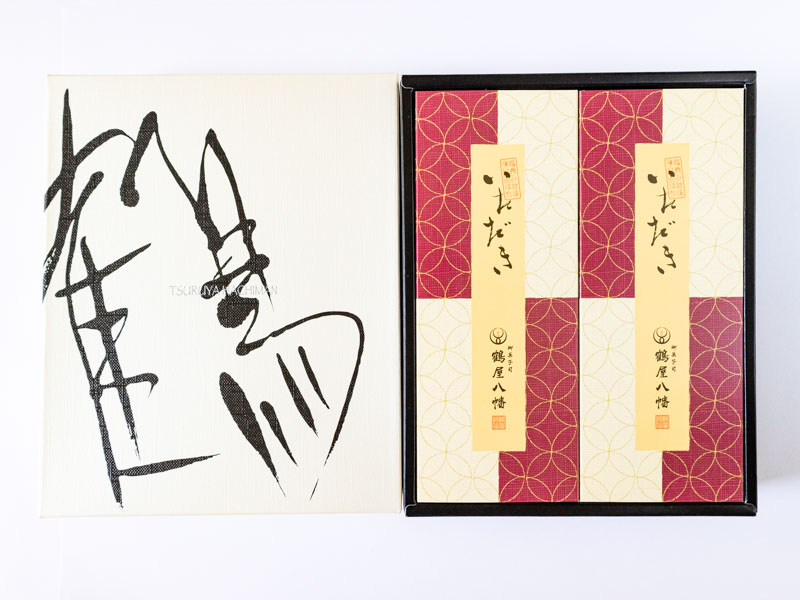 鶴
TSURUYA HACHIMAN
いただき
御菓子司
鶴屋八幡
いただき
御菓子司
鶴屋八幡